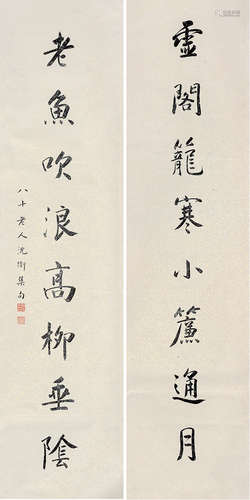 虛閣籠寒小簾通月
老魚吹浪高柳垂陰
八十老人沈衛集句